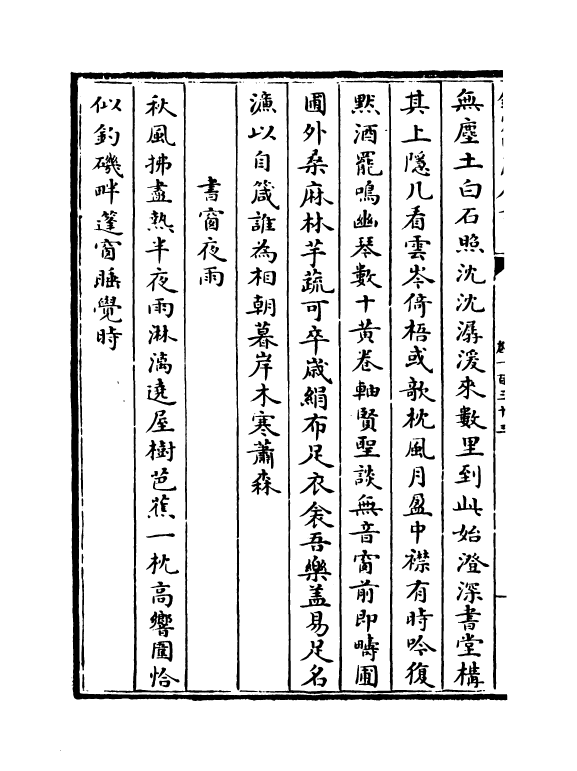 無塵土白石照沈沈潺湲來數里到此始澄深書堂構
其上隱几看雲岑倚梧或歌枕風月盈中襟有時吟復
黙酒罷鳴幽琴數十黄卷軸賢聖談無音窗前即疇圃
圃外桑麻林芋蔬可卒歲絹布足衣衾吾樂盖易足名
濂以自箴誰為相朝暮岸木寒蕭森
書窗夜雨
秋風拂盡熱半夜雨淋漓遶屋樹芭蕉一枕高響圍恰
似釣磯畔蓬窗睡覺時